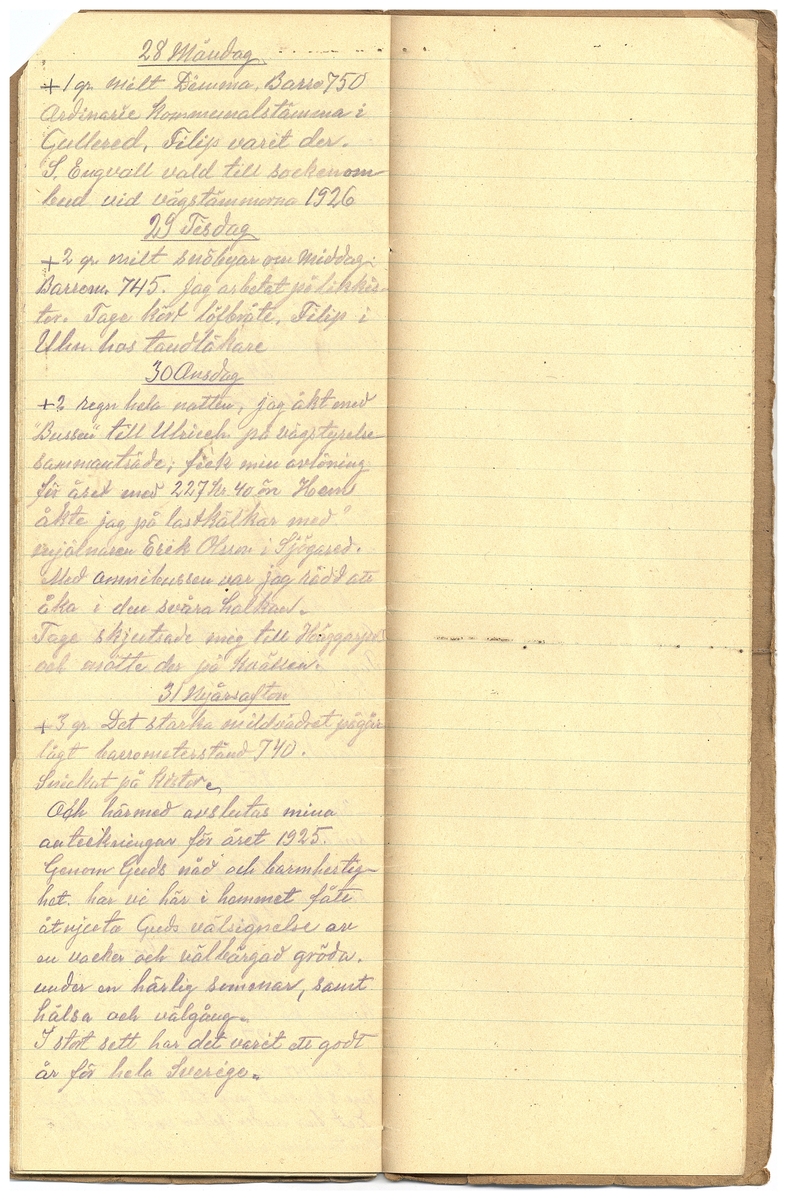 28 Måndag
+1 gr. milt Dimma, Barro 750
Ordinarie Kommunalstämma i
Gullered, Filip varit der.
S. Engvall vald till sockenom-
bud vid vägstämmorna 1926
29 Tisdag
+2 gr. milt snöbyar om middag.
Barrom. 745. jag arbetat på likkis-
tor. Tage kört löfbråte, Filip i
Ulin. hos tandläkare
30 Onsdag
+2 regn hela natten, jag åkt med
"Bussen" till Ulriceh. på vägstyrelse
sammanträde, fick min avlöning
för året med 227 kr 40 ön Hem
åkte jag på lastkälkar med
mjölnaren Erik Olsson i Sjögared.
Med omnibussen var jag rädd att
åka i den svåra halkan.
Tage skjutsade meg till Häggarps
och mötte der på kvällen.
31 Nyårsafton
+3 gr. Det starka mildvädret pågår
lågt barometerstånd 740.
Snickat på kistor.
Och härmed avslutas mina
anteckningar för året 1925.
Genom Guds nåd och barmhertig-
het. har vi här i hemmet fått
åtnjuta Guds välsignelse av
en vacker och välbärgad gröda.
under en härlig sommar, samt
hälsa och välgång.
I stort sett har det varit ett godt
år för hela Sverige.